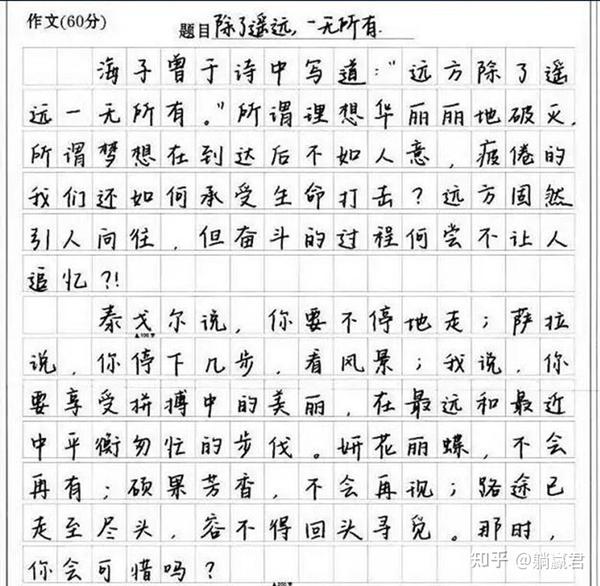 作文(60分)
题目除了遥远,一无所有.
海子曾于诗中写道:"远方除了遥
远一无所有。"所谓理想华丽丽地破灭,
所谓梦想在到达后不如人意,疲倦的
我们还如何承受生命打击?远方固然
引人向往,但奋斗的过程何尝不让人
追忆?!
泰戈尔说,你要不停地走;萨拉
说,你停下几步,看风景;我说,你
要享受拼搏中的美丽,在最远和最近
中平衡匆忙的步伐。妍花丽蝶,不会
再有;硕果芳香,不会再现;路途已
走至尽头,容不得回头寻觅。那时,
你会可惜吗?
知乎 @躺赢君